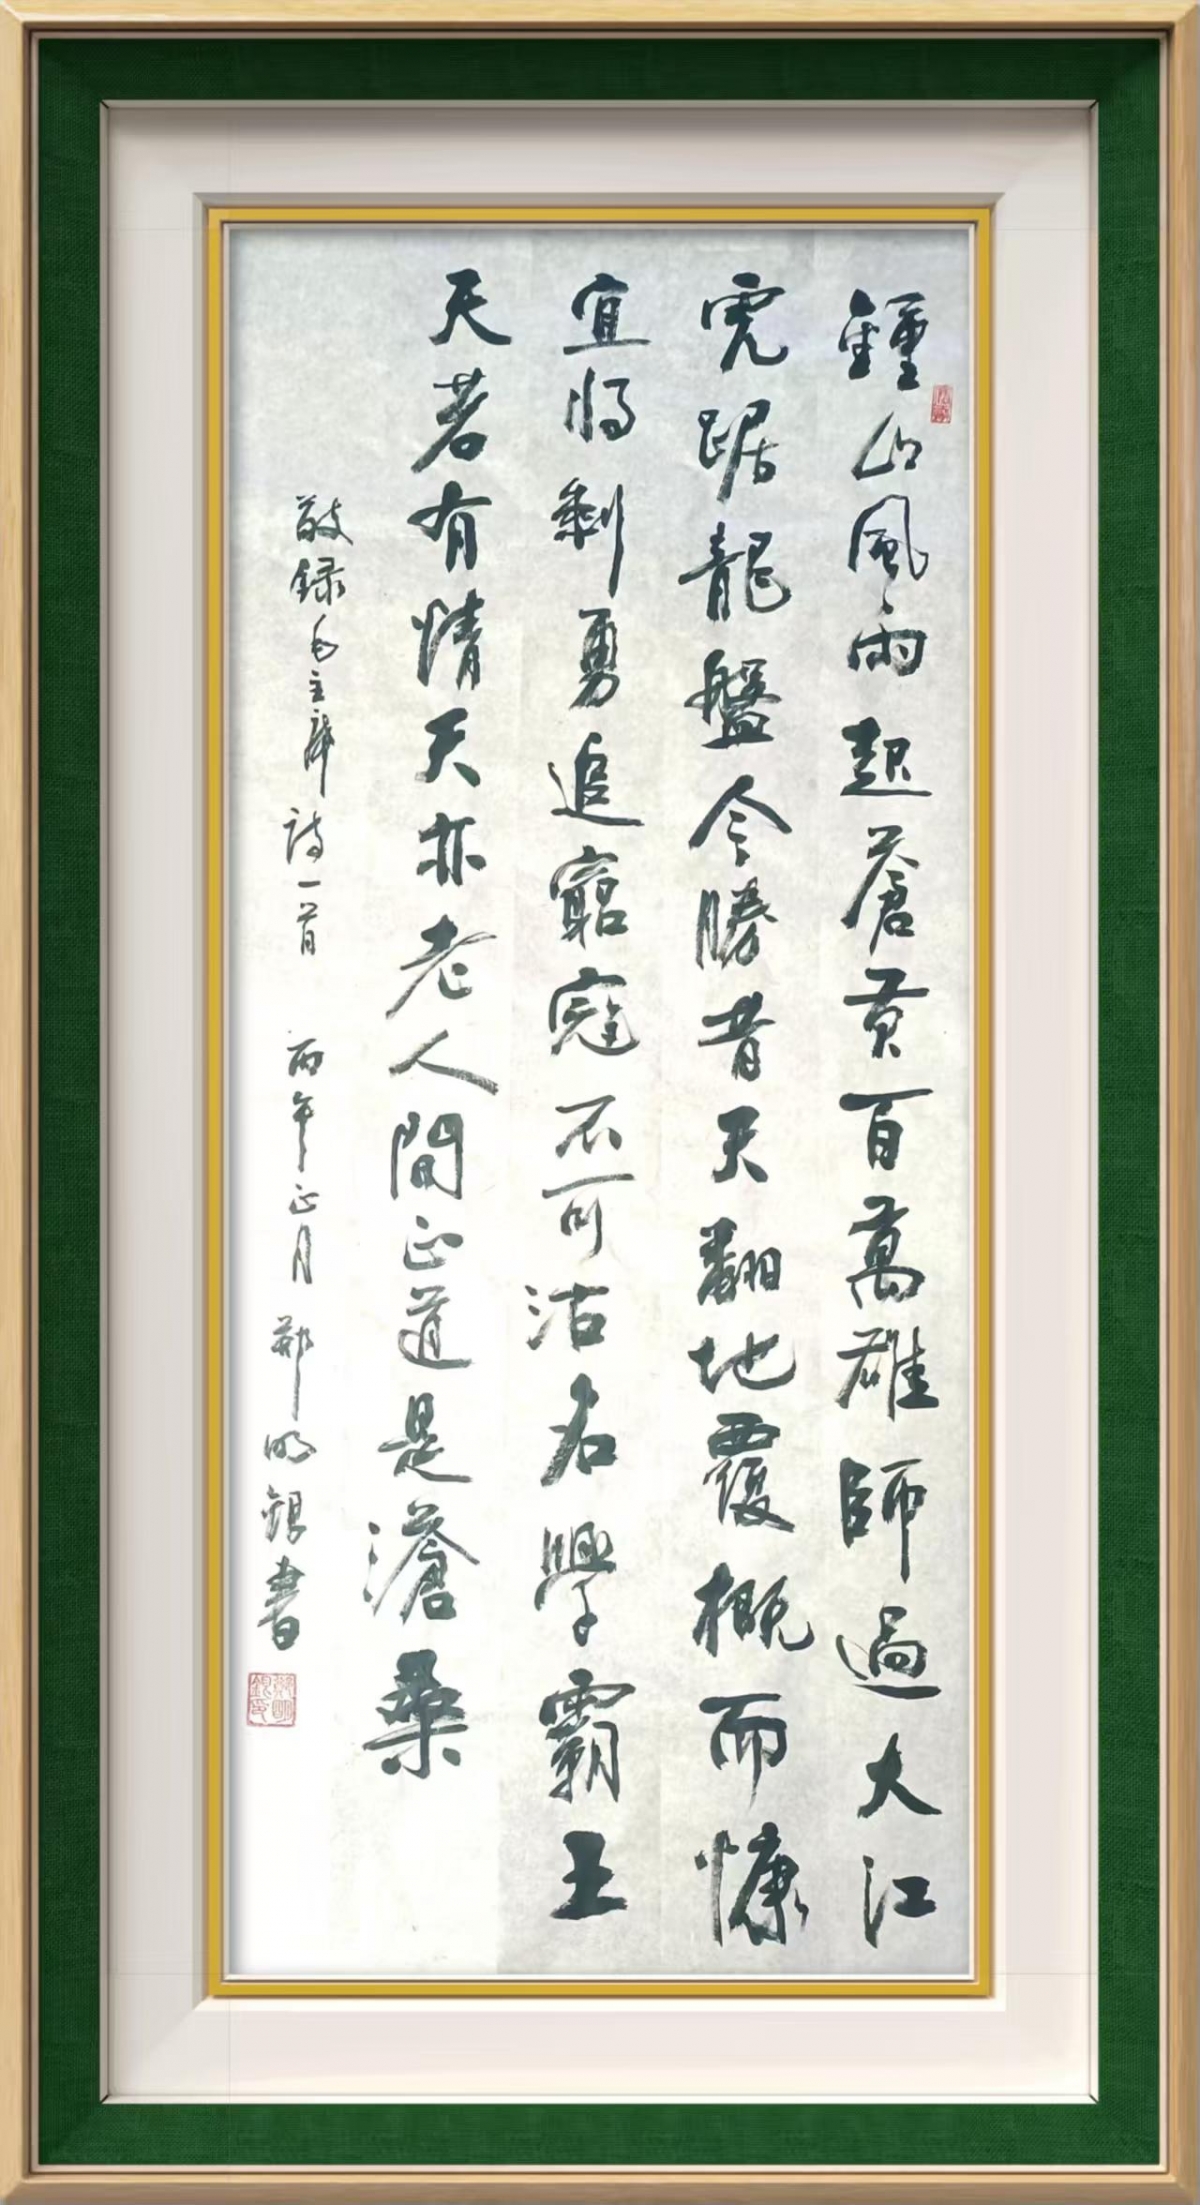 鍾山風雨起蒼黄百萬雄師過大江
虎踞龍盤今勝昔天翻地覆概而慷
宜将剩勇追窮寇不可沽名學霸王
天若有情天亦老人間正道是滄桑
敬録毛主席詩一首 丙午正月 鄭明銀書
鄭明銀印